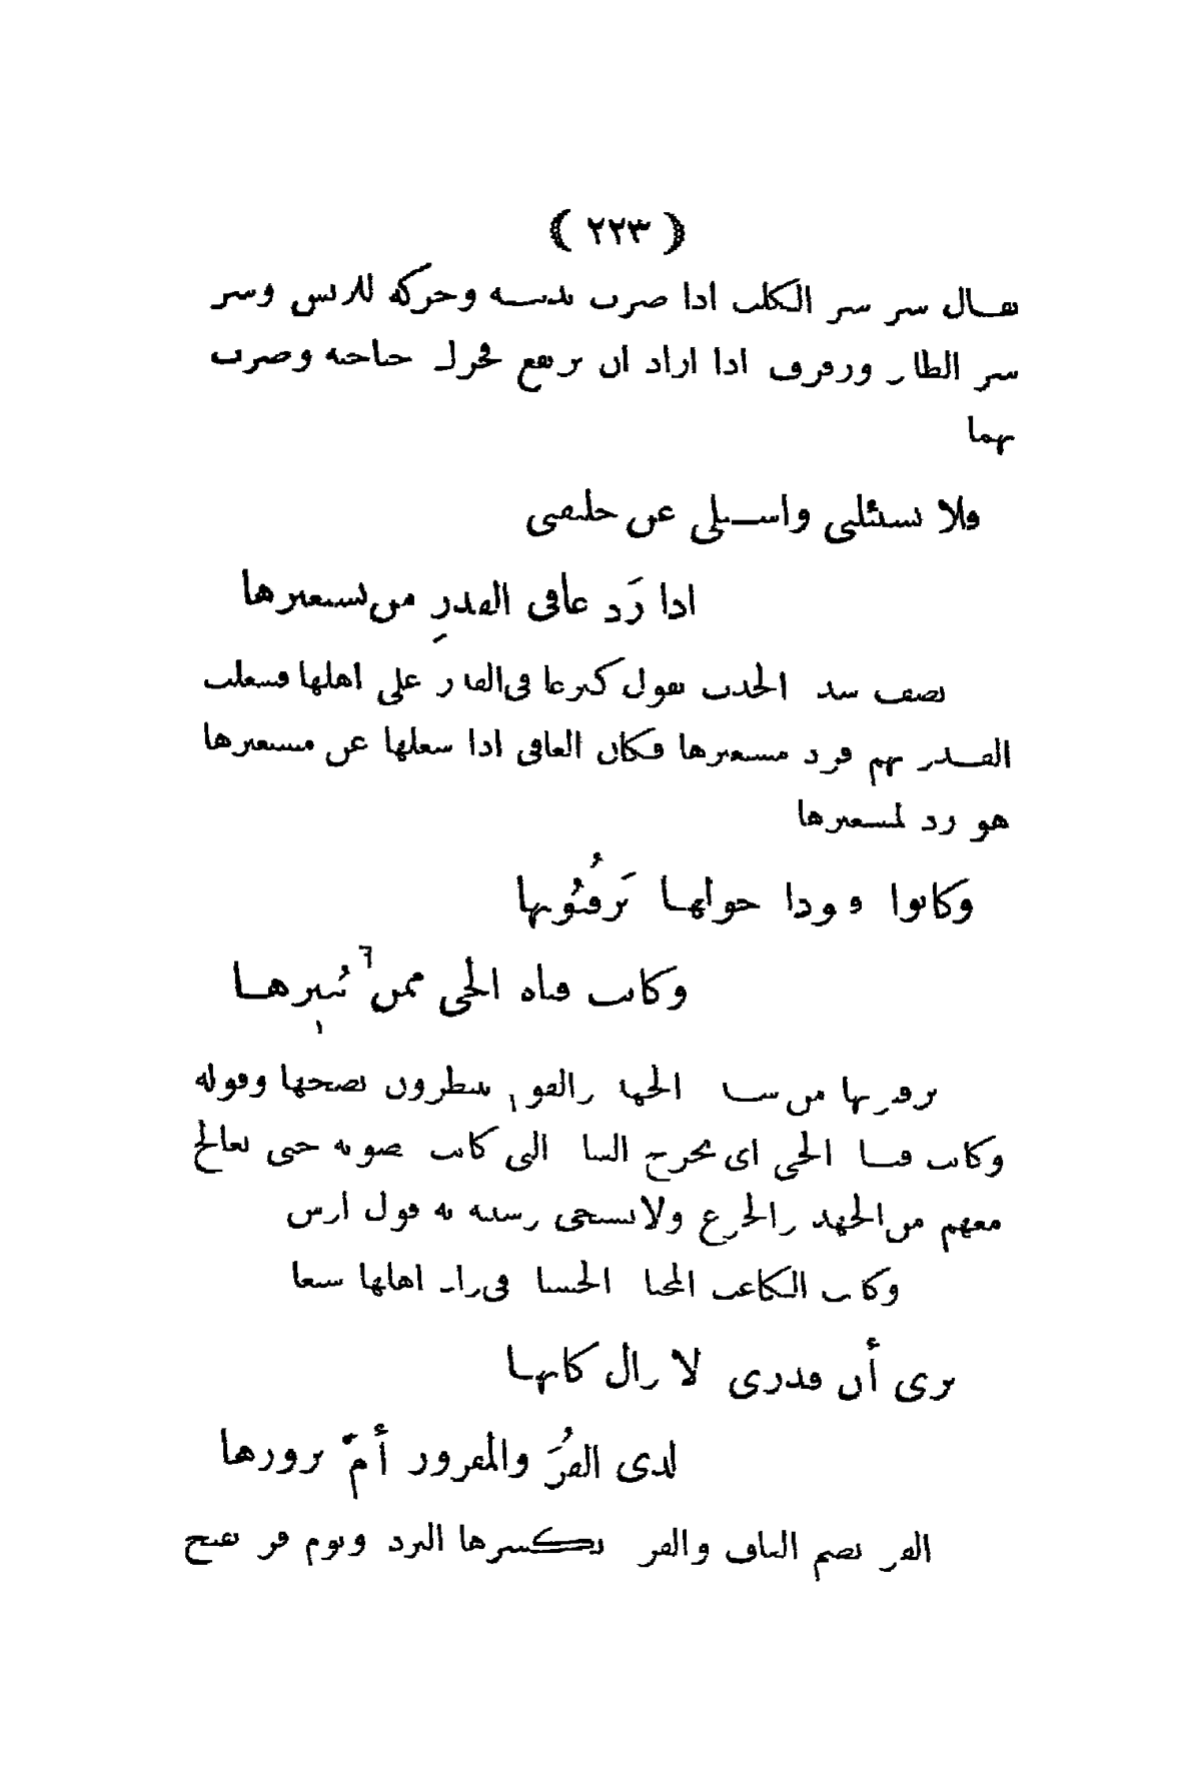 ﴿ ٢٢٣ ﴾
يقال الكلب اذا ضرب بذنبه وحركه للانس
الطائر ورفرف اذا اراد ان يرتفع فحرك جناحيه وضرب
بهما
فلا تسئلينى واسئلى عن خليقتى
اذا رَد عافى القدرِ من يستعيرها
يصف شدة الجدب يقول كثر عافى القدر على اهلها فشغلت
القدر بهم فرد مستعيرها فكان العافى اذا شغلها عن مستعيرها
هو رد لمستعيرها
وكانوا قعودا حولها يَرقُبُونها
وكانت فتاة الحى ممن يُنيرها
يرقبونها من الجهد والقوم ينتظرون نضجها وقوله
وكانت فتاة الحى اى تخرج الفتاة التى كانت مصونة حتى تعالج
معهم من الجهد والجوع ولا تستحى وشبيه به قول اوس
وكانت الكاعب المخبأة الحسناء فى زاد اهلها سبعا
ترى أن قدرى لا تزال كانها
لدى القُرَّ والمقرور أُمّ يزورها
القر بضم القاف والقر بكسرها البرد ويوم قر بفتح